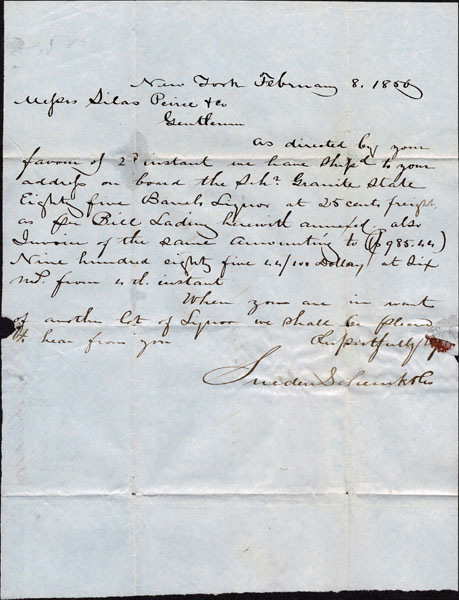 New York February 8. 1850
Messrs Silas Peirce & Co
Gentlemen
as directed by your
favour of 2d instant we have Shipd to your
address on board the Schr. Granite State
Eighty five Barrels Liquor at 25 cents freight,
as per Bill Lading herewith annexed, also
Invoice of the same Amounting to ($985.44)
Nine hundred eighty five 44/100 Dollars, at Six
mos. from 4 d. instant
When you are in want
of another lot of Liquor we shall be pleased
to hear from you Respectfully
& Co